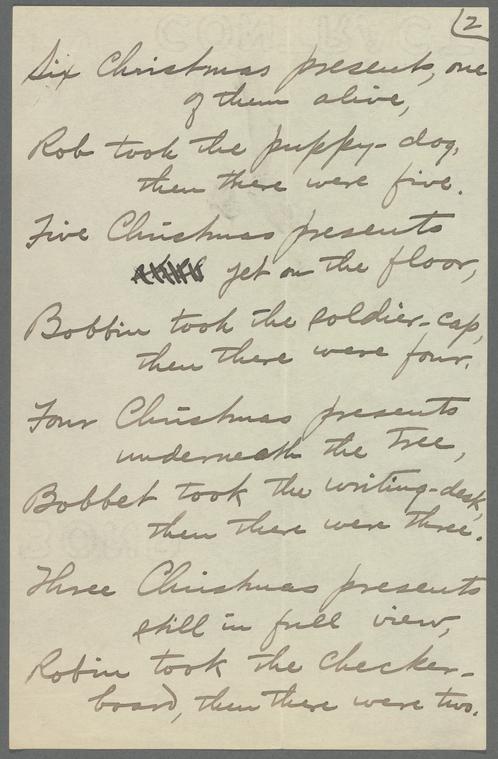 2
Six Christmas presents, one
of them alive,
Rob took the puppy-dog,
then there were five.
Five Christmas presents
yet on the floor,
Bobbin took the soldier-cap,
then there were four.
Four Christmas presents
underneath the tree,
Bobbet took the writing-desk,
then there were three.
Three Christmas presents
still in full view,
Robin took the checker-
board, then there were two.